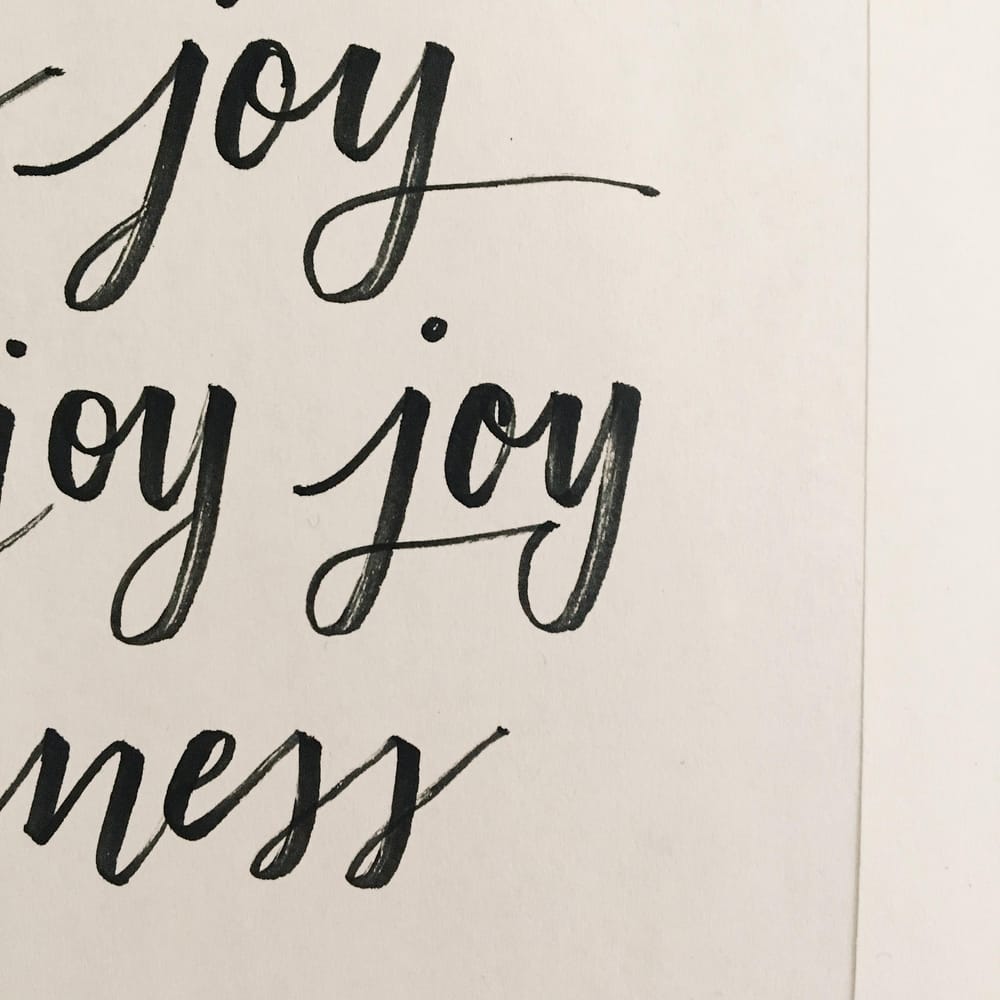 joy
joy joy
ness